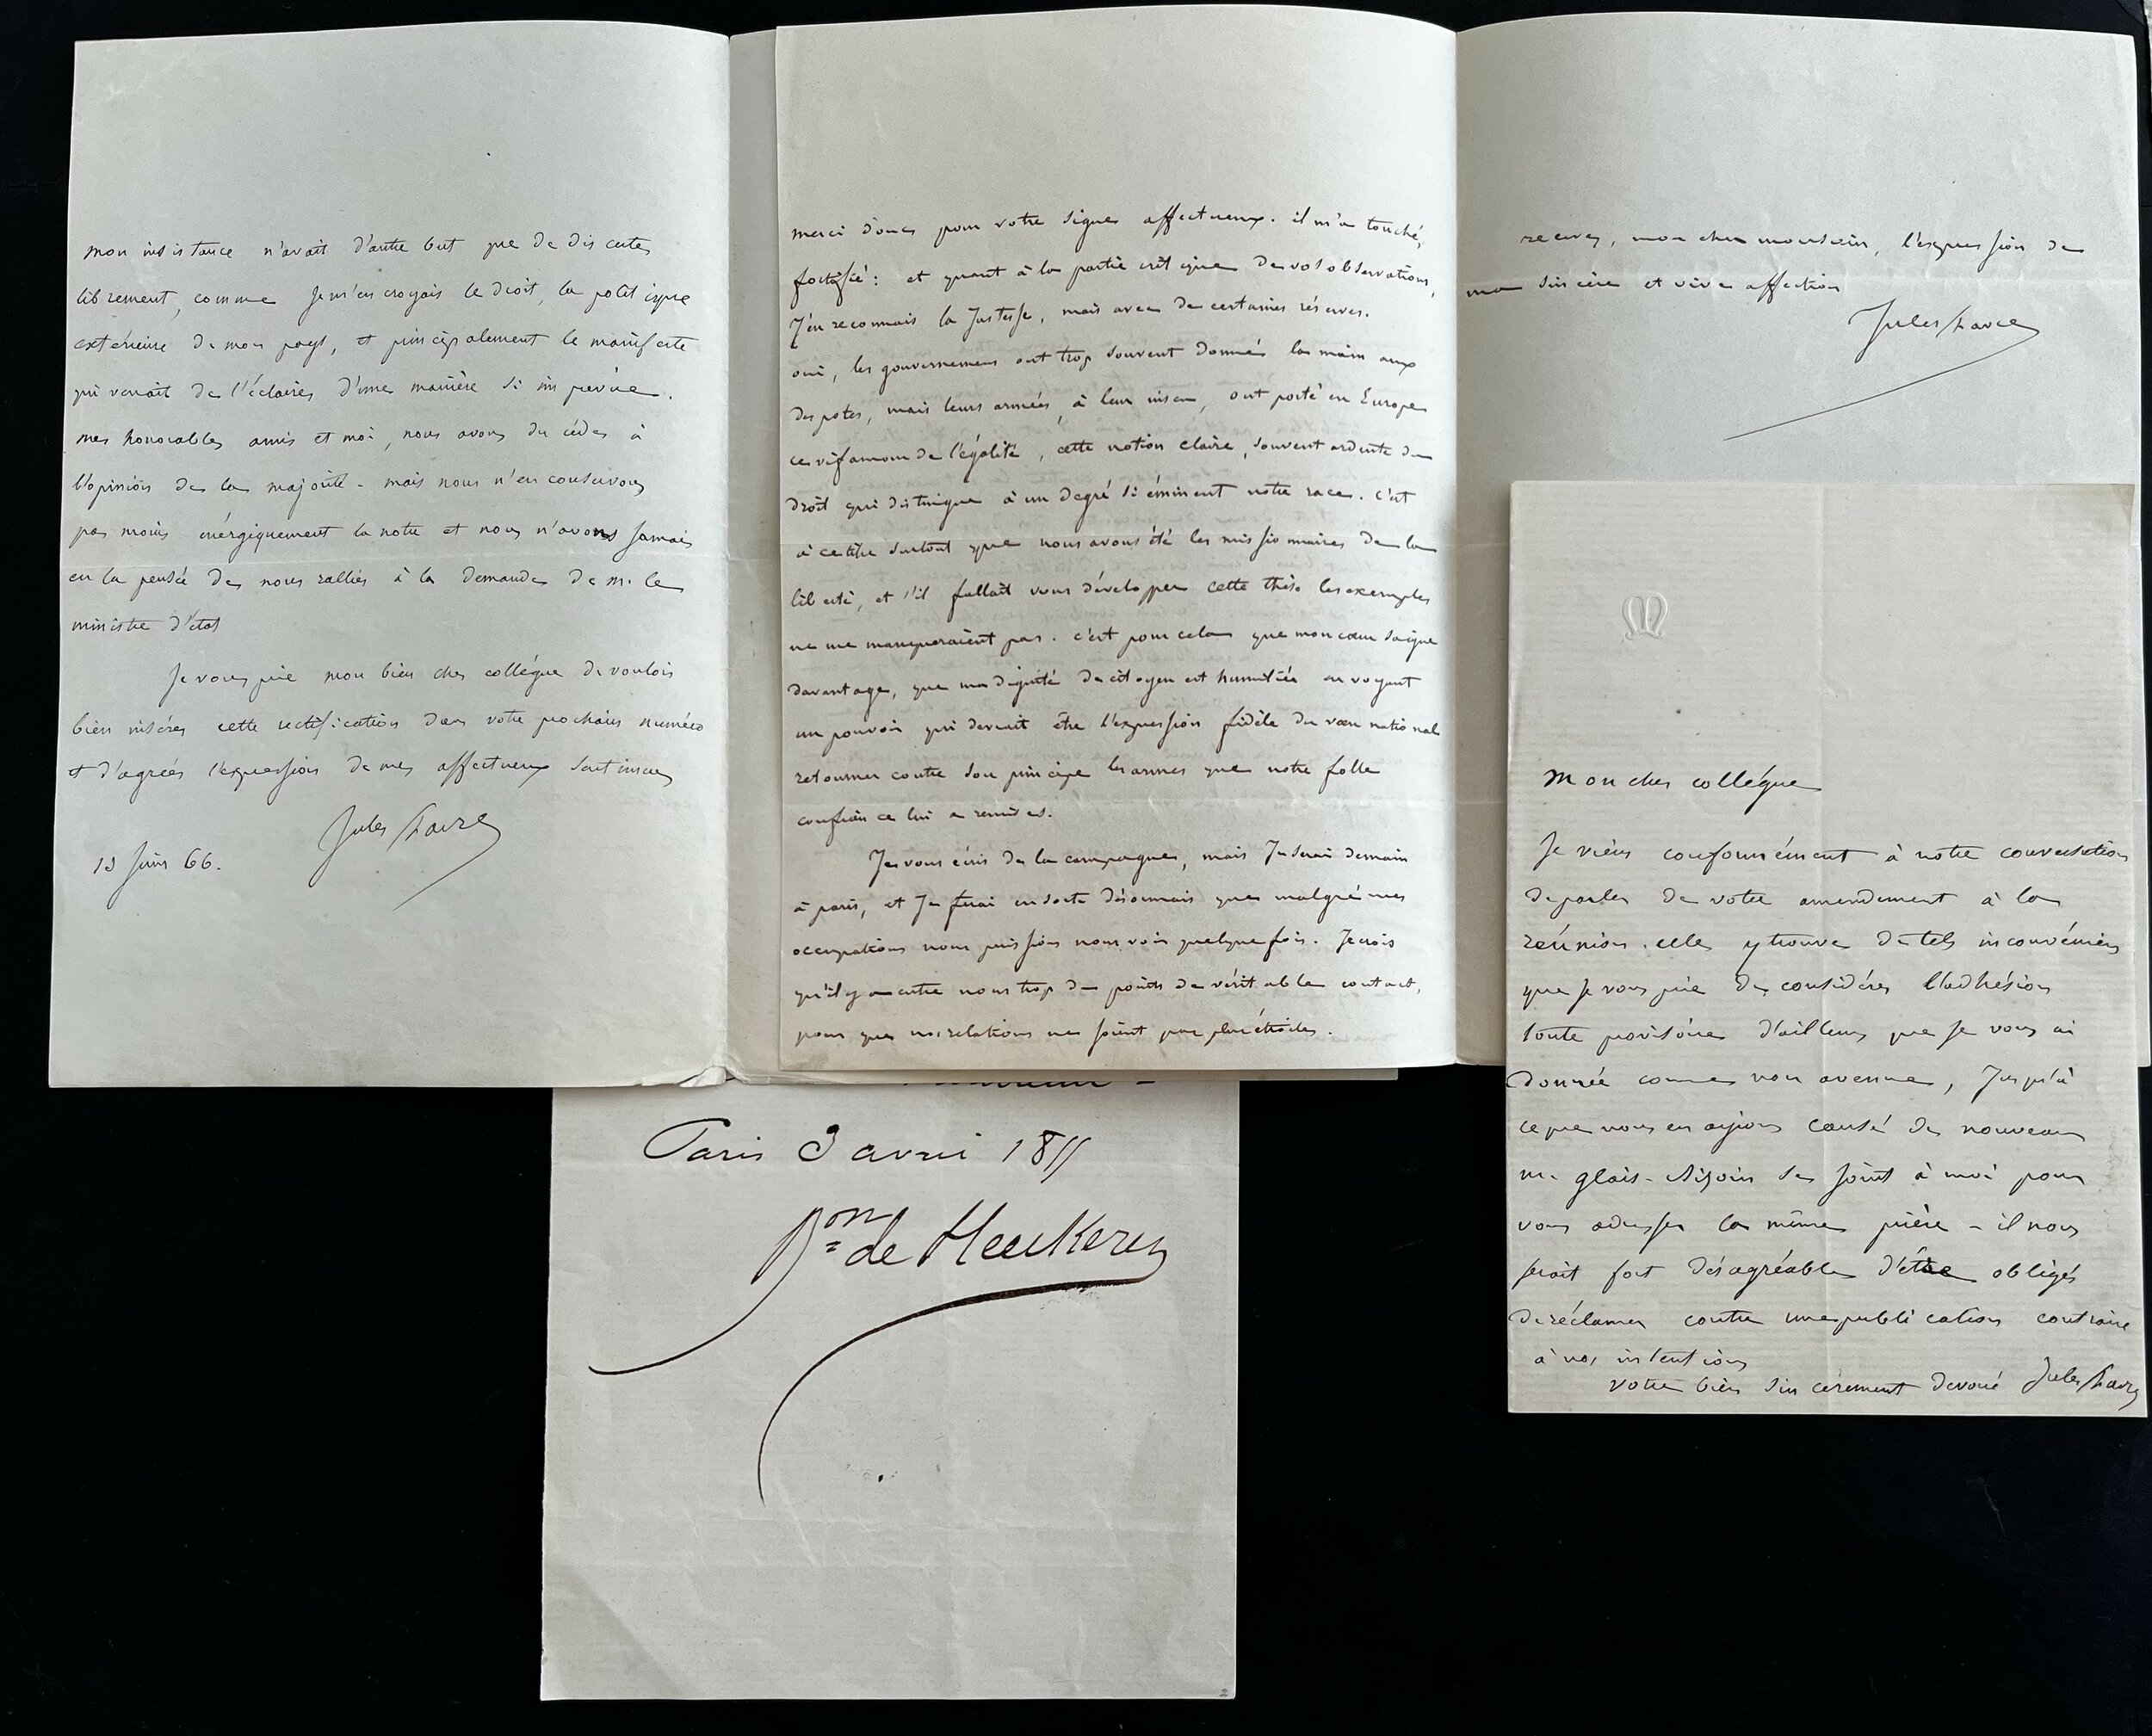 mon insistance n'avait d'autre but que de discuter
librement, comme je m'en croyais le droit, la politique
extérieure de mon pays, et principalement le manifeste
qui venait de l'éclairer d'une manière si imprévue.
mes honorables amis et moi, nous avons du céder à
l'opinion de la majorité - mais nous n'en conservons
pas moins énergiquement la notre et nous n'avons jamais
eu la pensée de nous rallier à la demande de m. le
ministre d'état
Je vous prie mon bien cher collégue de vouloir
bien insérer cette rectification dans votre prochain numéro
et d'agréer l'expression de mes affectueux sentimens
Jules Favre
13 Juin 66.
merci donc pour votre signe affectueux. il m'a touché,
fortifié : et quant à la partie critique de vos observations,
J'en reconnais la Justesse, mais avec de certaines réserves.
oui, les gouvernemens ont trop souvent donné la main aux
despotes, mais leurs armées, à leur insu, ont porté en Europe
ce vif amour de l'égalité, cette notion claire, souvent ardente du
droit qui distingue à un degré si éminent notre race. c'est
à ce titre surtout que nous avons été les missionnaires de la
liberté, et s'il fallait vous développer cette thèse les exemples
ne me manqueraient pas. c'est pour cela que mon cœur saigne
davantage, que ma dignité de citoyen est humiliée en voyant
un pouvoir qui devrait être l'expression fidèle du vœu national
retourner contre son principe les armes que notre folle
confiance lui a remises.
Je vous écris de la campagne, mais Je serai demain
à paris, et Je ferai en sorte désormais que malgré mes
occupations nous puissions nous voir quelquefois. Je crois
qu'il y a entre nous trop de points de véritable contact,
pour que nos relations ne soient pas plus étroites.
recevez, mon cher monsieur, l'expression de
ma sincère et vive affection
Jules Favre
M
Mon cher collégue
Je viens conformément à notre conversation
de parler de votre amendement à la
réunion. elle y trouve de tels inconvéniens
que je vous prie de considérer l'adhésion
toute provisoire d'ailleurs que je vous ai
donnée comme non avenue, Jusqu'à
ce que nous en ayions causé de nouveau
m. glais-Bizoin se joint à moi pour
vous adresser la même prière - il nous
serait fort désagréable d'être obligés
de réclamer contre une publication contraire
à nos intentions
votre bien sincèrement devoué Jules Favre
Paris 3 avril
Bon de Heeckeren
2